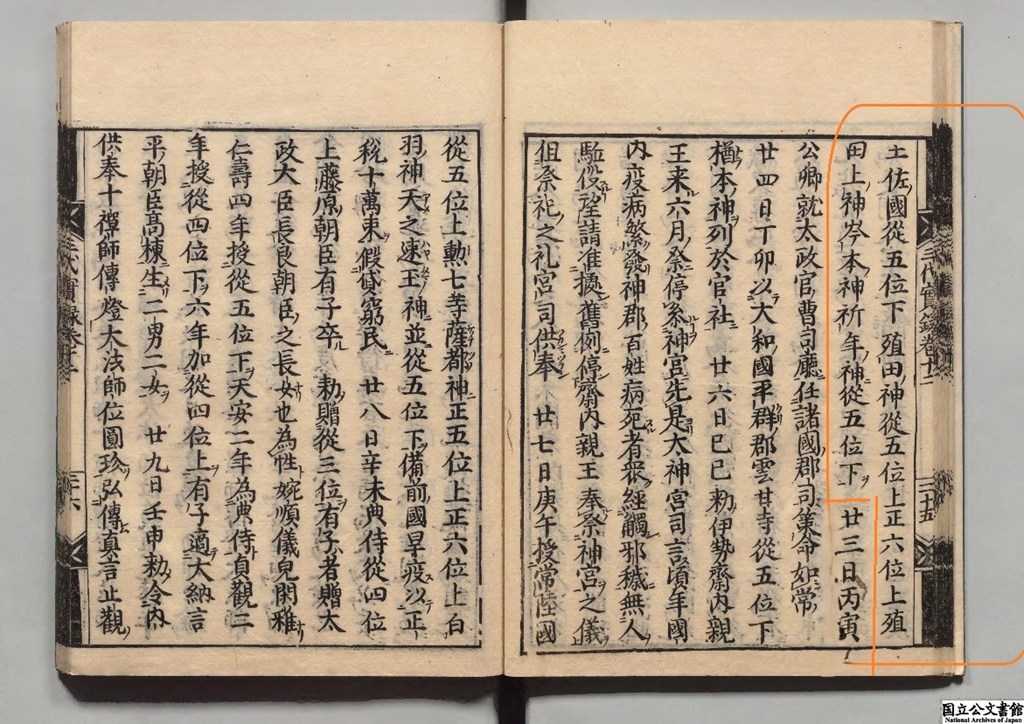 土佐國從五位下殖田神從五位上正六位上殖
田上神岑本神祈年神從五位下ヲ 廿三日丙寅
公卿就太政官曹司廳任諸國郡司策命如常
廿四日丁卯以大和國平群郡雲甘寺從五位下
楢本神列於官社 廿六日己巳勑伊勢齋內親
王来六月祭停糸神宮先是太神宮司言頃年國
內疫病繁發神郡百姓病死者衆經觸邪穢無人
駈伇望請准據舊例停齋內親王奉祭神宮之儀
但祭祀之礼宮司供奉 廿七日庚午授常陸國
從五位上勳七等薩都神正五位上正六位上白
羽神天之速玉神並從五位下備前國旱疫以正
稅十萬束假貸窮民 廿八日辛未典侍從四位
上藤原朝臣有子卒 勑贈從三位有子者贈太
政大臣長良朝臣之長女也為性婉順儀皃閑雅
仁壽四年授從五位下天安二年為典侍貞觀二
年授從四位下六年加從四位上有子適大納言
平朝臣髙棟生二男二女 廿九日壬申勑令內
供奉十禪師傳燈大法師位圓珍弘傳真言止觀
三代實錄卷十二
三十五
三十六
国立公文書館
National Archives of Japan